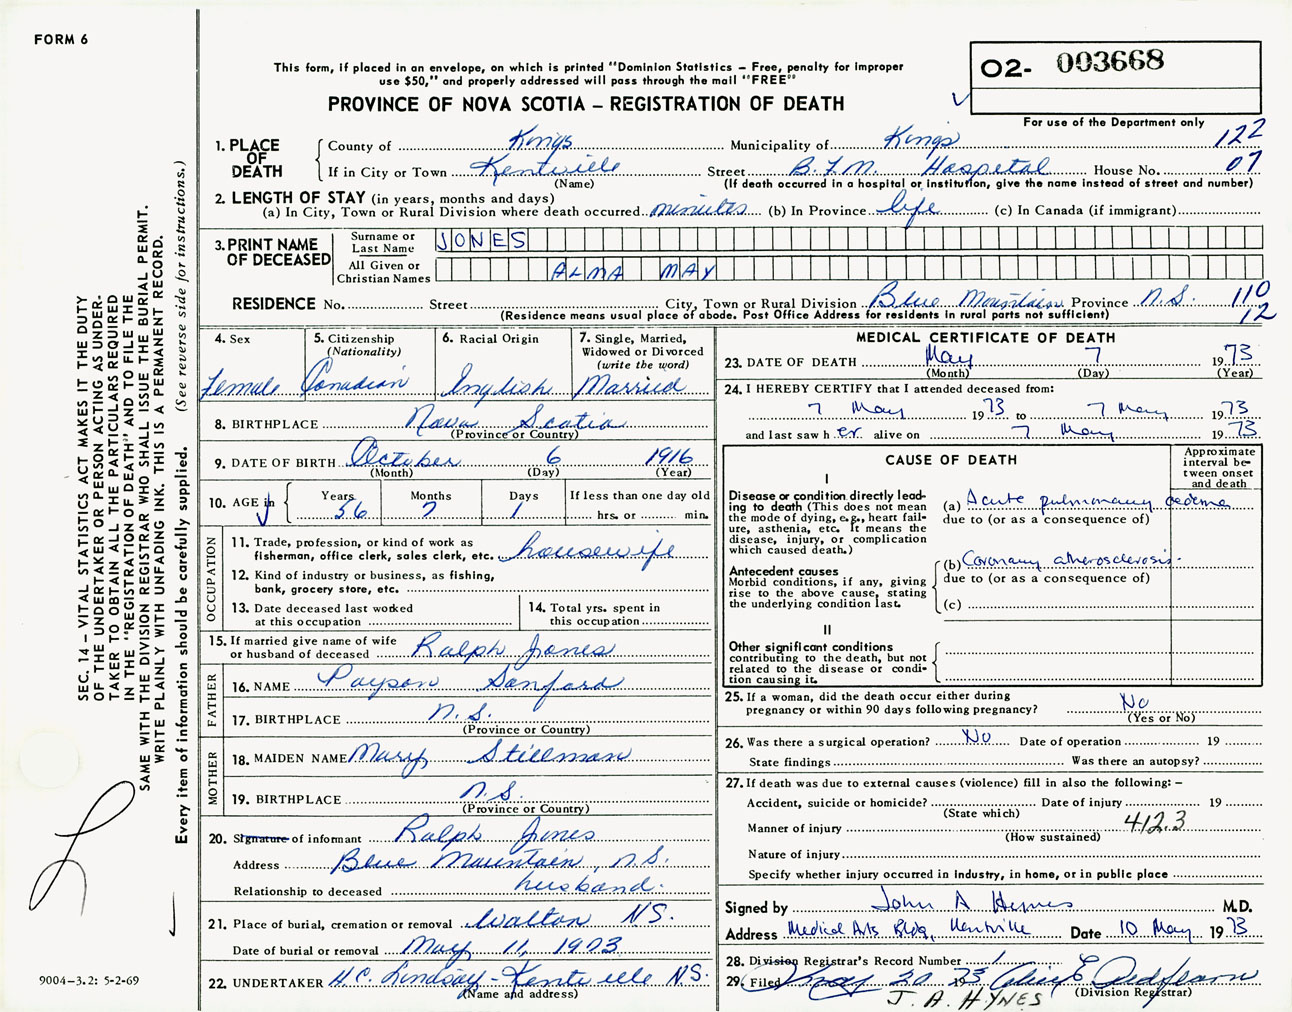 FORM 6
This form, if placed in an envelope, on which is printed "Dominion Statistics – Free, penalty for improper
use $50," and properly addressed will pass through the mail "FREE"
PROVINCE OF NOVA SCOTIA – REGISTRATION OF DEATH
O2- 003668
For use of the Department only
1. PLACE OF DEATH
County of Kings Municipality of Kings 122
If in City or Town Kentville Street B.F.M. Hospital House No. 07
(Name) (If death occurred in a hospital or institution, give the name instead of street and number)
2. LENGTH OF STAY (in years, months and days)
(a) In City, Town or Rural Division where death occurred minutes (b) In Province life (c) In Canada (if immigrant)
3. PRINT NAME OF DECEASED
Surname or Last Name JONES
All Given or Christian Names ALMA MAY
RESIDENCE No. Street City, Town or Rural Division Blue Mountain Province N.S. 110
(Residence means usual place of abode. Post Office Address for residents in rural parts not sufficient) 12
4. Sex Female
5. Citizenship (Nationality) Canadian
6. Racial Origin English
7. Single, Married, Widowed or Divorced (write the word) Married
8. BIRTHPLACE Nova Scotia
(Province or Country)
9. DATE OF BIRTH October 6 1916
(Month) (Day) (Year)
10. AGE in Years 56 Months 7 Days 1 If less than one day old hrs. or min.
OCCUPATION
11. Trade, profession, or kind of work as
fisherman, office clerk, sales clerk, etc. housewife
12. Kind of industry or business, as fishing,
bank, grocery store, etc.
13. Date deceased last worked
at this occupation
14. Total yrs. spent in
this occupation
15. If married give name of wife
or husband of deceased Ralph Jones
FATHER
16. NAME Payson Sanford
17. BIRTHPLACE N.S.
(Province or Country)
MOTHER
18. MAIDEN NAME Mary Stillman
19. BIRTHPLACE N.S.
(Province or Country)
20. Signature of informant Ralph Jones
Address Blue Mountain, N.S.
Relationship to deceased husband.
21. Place of burial, cremation or removal Walton N.S.
Date of burial or removal May 11, 1973
22. UNDERTAKER H.C. Lindsay - Kentville N.S.
(Name and address)
MEDICAL CERTIFICATE OF DEATH
23. DATE OF DEATH May 7 1973
(Month) (Day) (Year)
24. I HEREBY CERTIFY that I attended deceased from:
7 May 1973 to 7 May 1973
and last saw her alive on 7 May 1973
CAUSE OF DEATH
Approximate interval between onset and death
I
Disease or condition directly lead-
ing to death (This does not mean
the mode of dying, e.g., heart fail-
ure, asthenia, etc. It means the
disease, injury, or complication
which caused death.)
(a) Acute pulmonary oedema
due to (or as a consequence of)
Antecedent causes
Morbid conditions, if any, giving
rise to the above cause, stating
the underlying condition last.
(b) Coronary atherosclerosis.
due to (or as a consequence of)
(c)
II
Other significant conditions
contributing to the death, but not
related to the disease or condi-
tion causing it.
25. If a woman, did the death occur either during
pregnancy or within 90 days following pregnancy? No
(Yes or No)
26. Was there a surgical operation? No Date of operation 19
State findings Was there an autopsy?
27. If death was due to external causes (violence) fill in also the following: –
Accident, suicide or homicide? Date of injury 19
(State which)
Manner of injury 412.3
(How sustained)
Nature of injury
Specify whether injury occurred in Industry, in home, or in public place
Signed by John A Hynes M.D.
Address Medical Arts Bldg, Kentville Date 10 May 1973
28. Division Registrar's Record Number 1
29. Filed May 30 1973
(Division Registrar)
J. A. HYNES
SEC. 14 – VITAL STATISTICS ACT MAKES IT THE DUTY
OF THE UNDERTAKER OR PERSON ACTING AS UNDER-
TAKER TO OBTAIN ALL THE PARTICULARS REQUIRED
IN THE "REGISTRATION OF DEATH" AND TO FILE THE
SAME WITH THE DIVISION REGISTRAR WHO SHALL ISSUE THE BURIAL PERMIT.
WRITE PLAINLY WITH UNFADING INK. THIS IS A PERMANENT RECORD.
Every item of information should be carefully supplied. (See reverse side for instructions.)
9004–3.2: 5-2-69